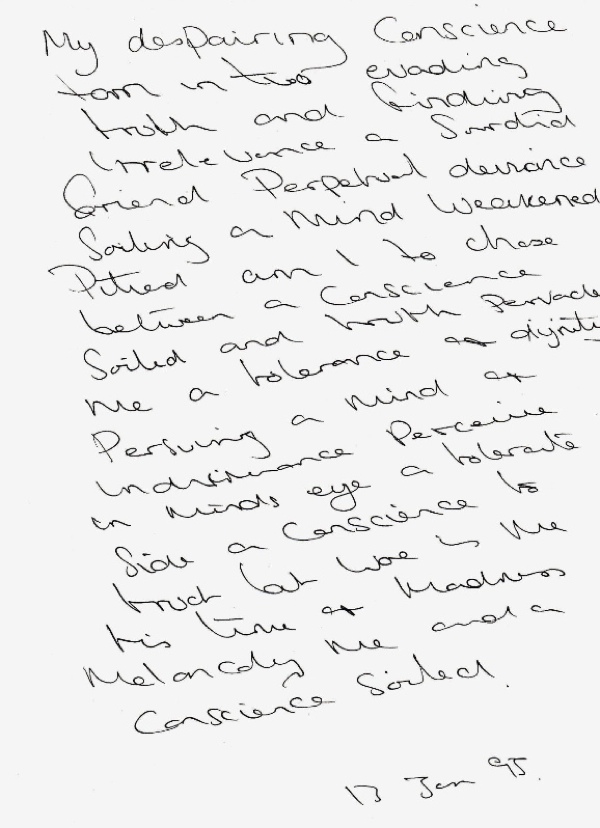 My despairing Conscience
torn in two evading
truth and finding
Irrelevance a Sordid
friend Perpetual deviance
Soiling a Mind Weakened
Pitied am I to chose
between a Conscience
Soiled and truth Pervade
me a tolerance dignity
Persuing a Mind of
Indifference Perceive
in minds eye a tolerate
Side a Conscience to
trust but woe is me
tis time of Madness
Melancoly Me and a
Conscience Soiled.
13 Jan 95.